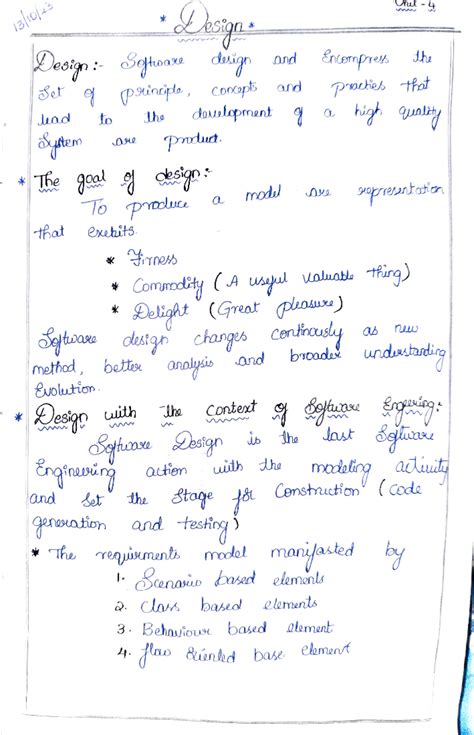 13/10/23
Unit - 4
* Design *
Design :- Software design and Encompress the
Set of principle, concepts and practies that
lead to the development of a high quality
System are product.
* The goal of design :-
To produce a model are representation
that exebits.
* Firness
* Commodity (A useful valuable thing)
* Delight (Great pleasure)
Software design changes continously as new
method, better analysis and broader understanding
Evolution.
* Design with the context of Software Engeering :-
Software Design is the last Software
Engineering action with the modeling activity
and set the Stage for Construction (code
generation and testing)
* The requirments model manifasted by
1. Scenario based elements
2. Class based elements
3. Behaviour based element
4. flow oriented base element